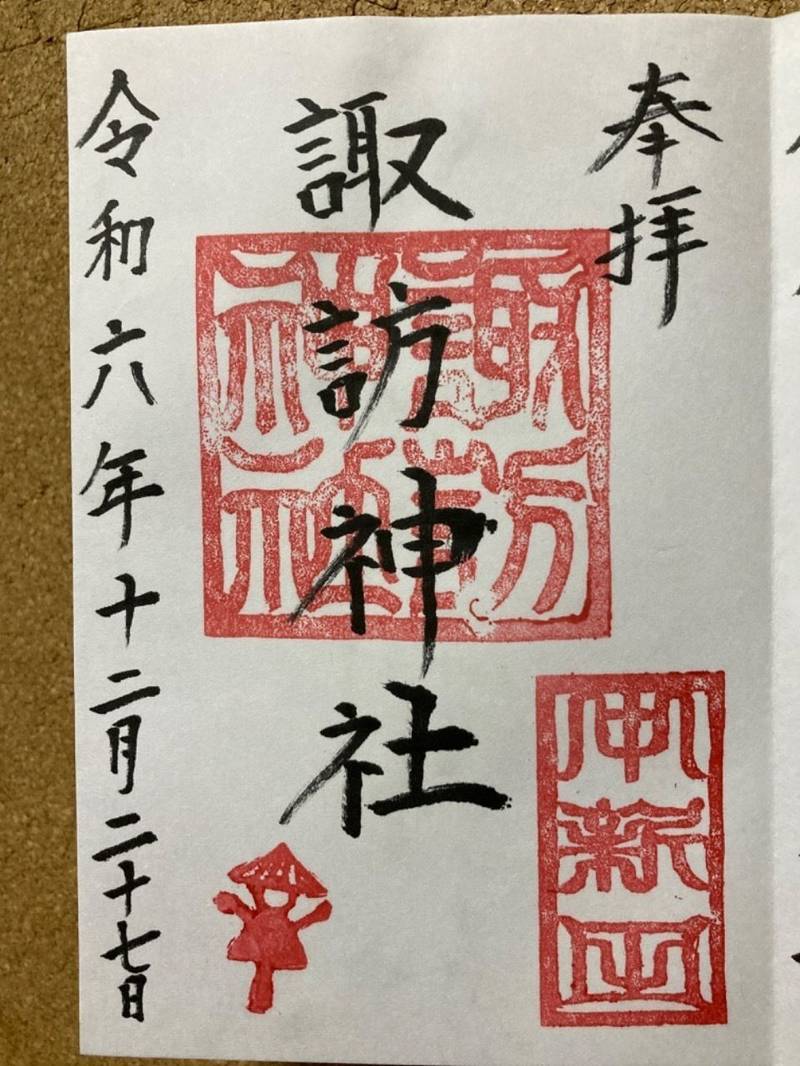 奉拝
諏訪神社
令和六年十二月二十七日